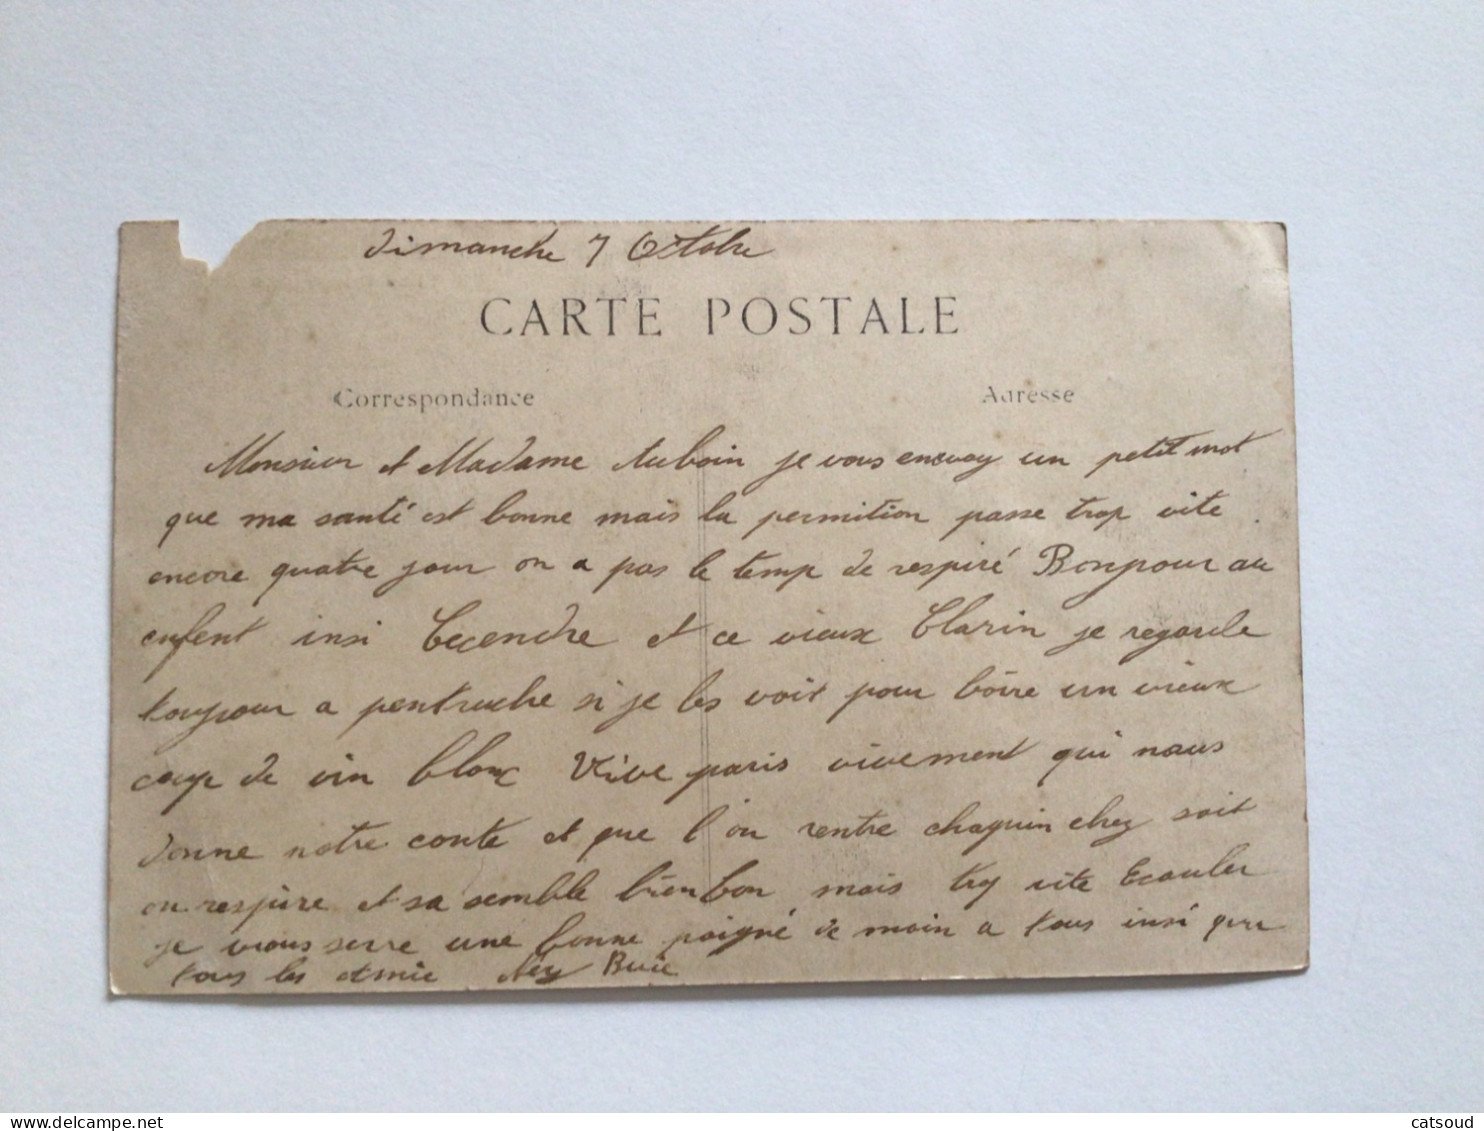 Dimanche 7 Octobre
CARTE POSTALE
Correspondance
Adresse
Monsieur et Madame Auboin je vous envoy un petit mot
que ma santé est bonne mais la permition passe trop vite
encore quatre jour on a pas le temp de respiré Bonjour au
enfent insi et ce vieux Clarin je regarde
toujour a pentruche si je les voit pour boire un vieux
coup de vin blanc Vive paris vivement qui nous
donne notre conte et que l'on rentre chaquin chez soit
on respire et sa semble bien bon mais try vite Ecouler
je vous serre une bonne poigné de main a tous insi que
tous les Amie
delcampe.net
catsoud